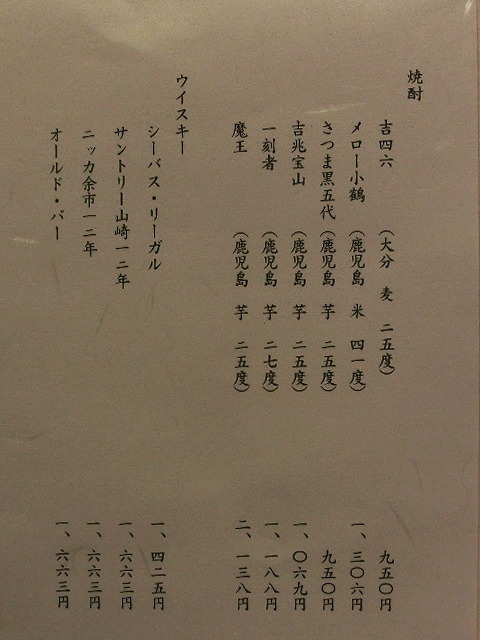 焼酎
吉四六 （大分 麦 二五度） 九五〇円
メロー小鶴 （鹿児島 米 四一度） 一、三〇六円
さつま黒五代 （鹿児島 芋 二五度） 九五〇円
吉兆宝山 （鹿児島 芋 二五度） 一、〇六九円
一刻者 （鹿児島 芋 二七度） 一、一八八円
魔王 （鹿児島 芋 二五度） 二、一三八円
ウイスキー
シーバス・リーガル 一、四二五円
サントリー山崎一二年 一、六六三円
ニッカ余市一二年 一、六六三円
オールド・パー 一、六六三円